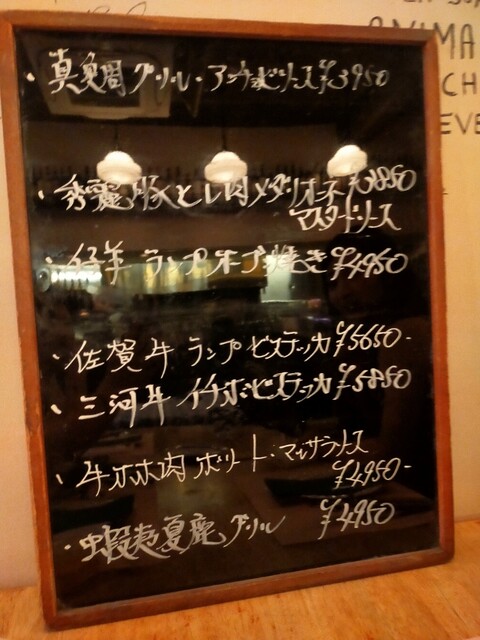 ・真鯛グリル・アンチョビソース ¥3950
・秀麗豚ヒレ肉メダリオーネ ¥3850
マスタードソース
・仔羊ランプ オーブン焼き ¥4950
・佐賀牛 ランプ ビステッカ ¥5650-
・三河牛 イチボ ビステッカ ¥5850
・牛ホホ肉 ボリート・マルサラソース
¥4950-
・蝦夷夏鹿 グリル ¥4950
ANIMA
CH
EVE